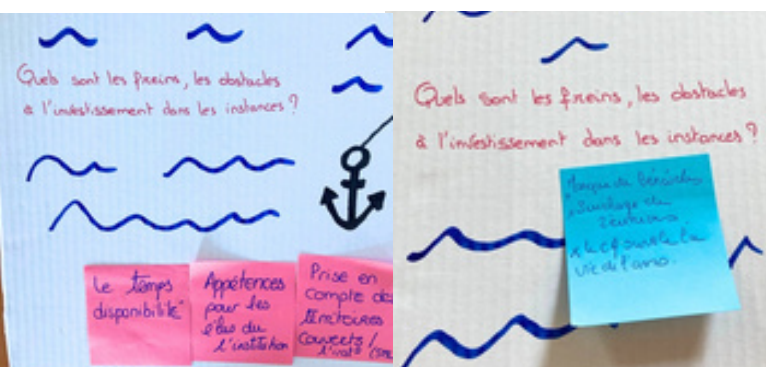 Quels sont les freins, les obstacles
à l'investissement dans les instances ?
Le temps
disponibilité
Appétences
pour les
élus du
l'institution
Prise en
compte des
territoires
couverts /
Quels sont les freins, les obstacles
à l'investissement dans les instances ?
manque de bénévoles
réunions
vie de l'asso.